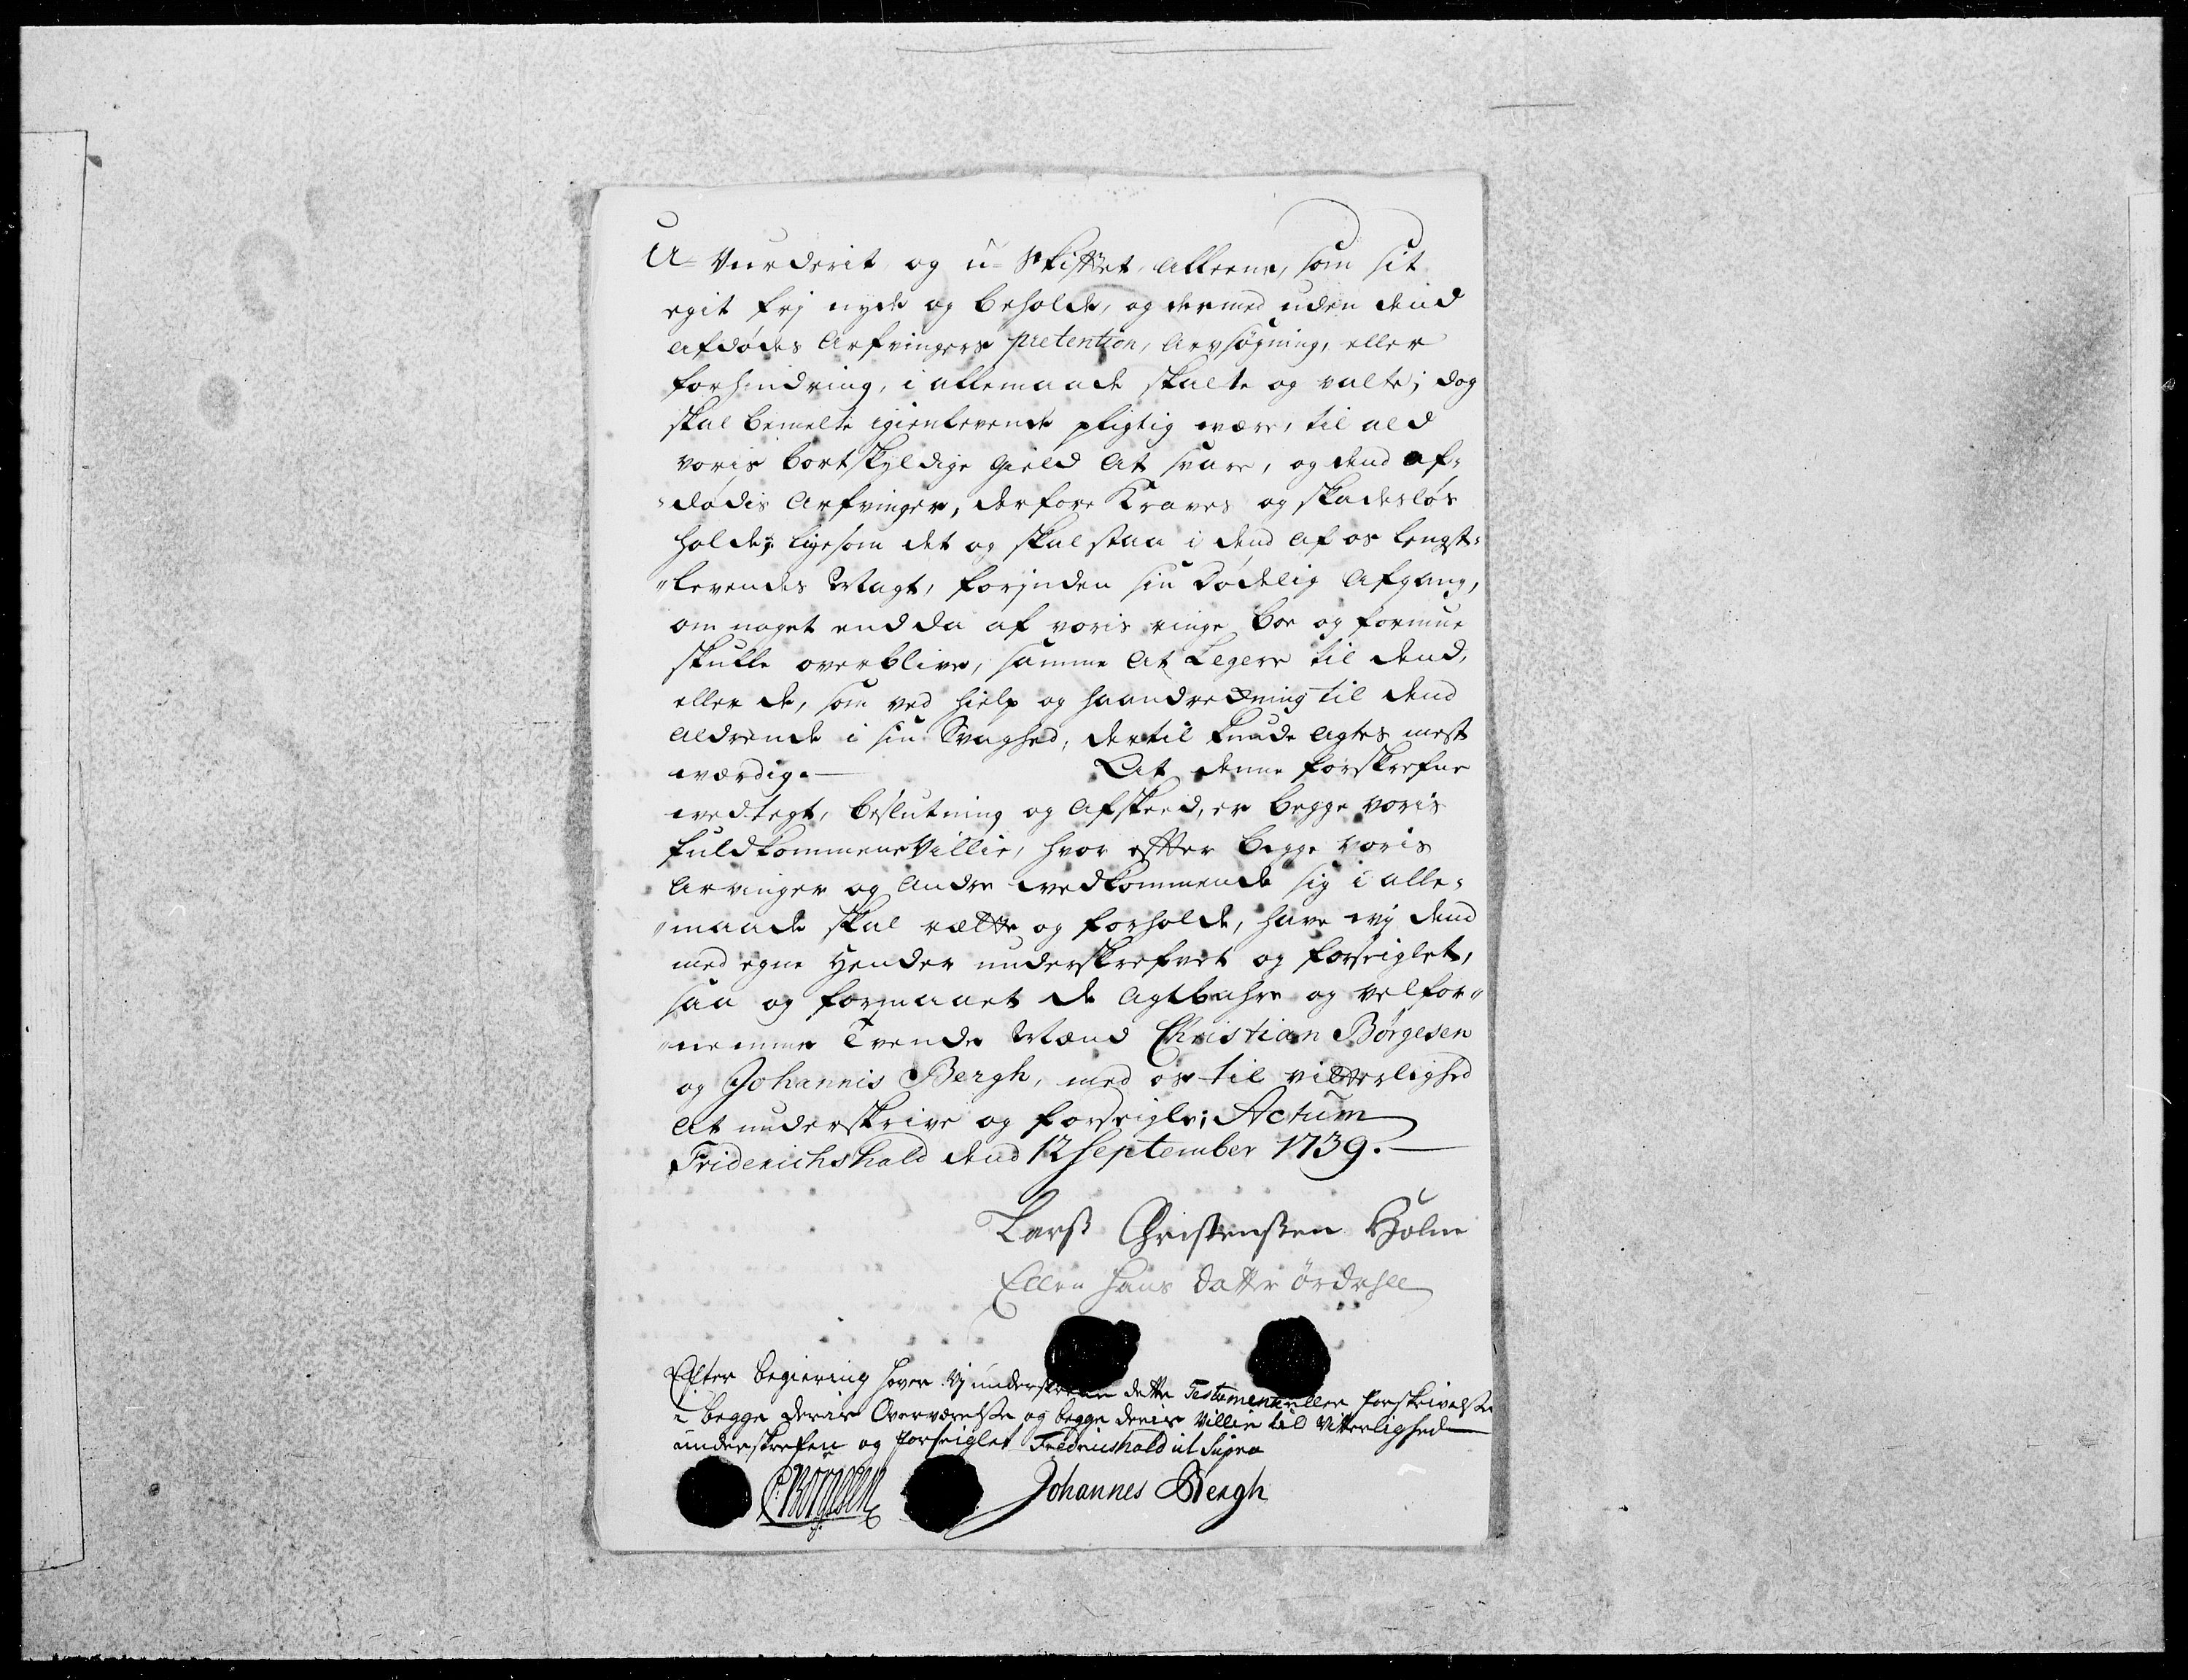 U- Vurderit og u-Skiftet, alleene, som sit
egit frj nyde og beholde, og dermed uden dend
afdødes Arfvingers pretention, Arvsøgning, eller
forhindring, i allemaade skalte og valte; dog
skal bemelte igienlevende pligtig være, til ald
voris bortskyldige Gield at svare, og dend af-
-dødis Arfvinger, derfore Kraves og skadesløs
holde; ligesom det og skal staa i dend af os Lengst-
"levendes Magt, forjnden sin Dødelig Afgang,
om noget endda af voris ringe boe og formue
skulle overblive, samme at Legere til dend,
eller de, som ved hielp og haandrekning til dend
Aldrende i sin Svaghed, dertil kunde agtes mest
værdig.— At denne forskrefne
vedtegt, beslutning og Afskeed, er begge voris
fuldkommene Villie, hvor effter begge voris
Arvinger og andre vedkommende sig i alle-
"maade skal rætte og forholde, have wij dend
med egne Hender underskrefvet og forseiglet,
saa og formaaet de Agtbahre og velfor"
"nemme Tvende Mænd Christian Børgesen
og Johannis Bergh, med os til vitterlighed
at underskrive og forseigle; Actum
Friderichshald dend 12 September 1739.—
Larß Christenßen Holm
Ellen Hans datter
Efter begiering haver Vj underskreve dette Testamente eller forskrivelße
i begge deris Overværelße og begge deris Villie til Vitterlighed
underskrefven og forseiglet Fredrichshald ut Supra
C: Börgesen Johannes Bergh